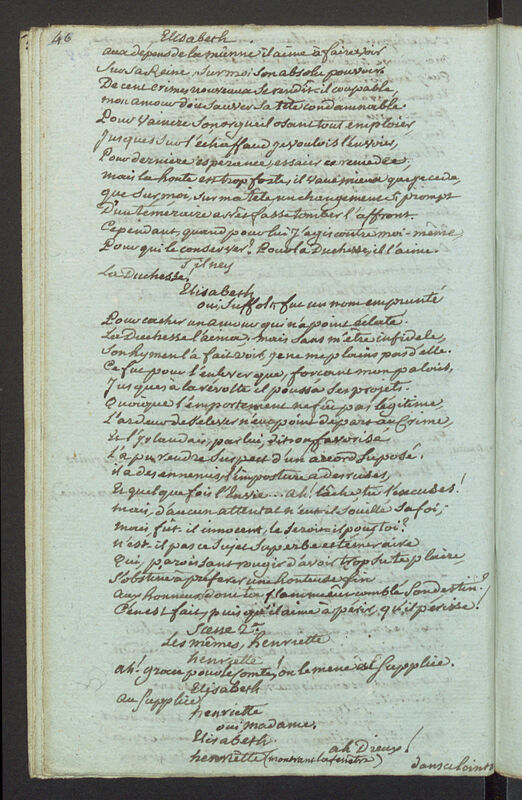 46
Elisabeth
aux depens de la mienne il aime à faire voir
Sur sa Reine, Sur moi Son absolu pouvoir
De cent crimes nouveaux Se rendît-il coupable,
mon amour doit Sauver sa tête condamnable.
Pour vaincre Son orgueil osant tout emploier
Jusques Sur l'échaffaud je voulois l'envoier,
Pour derniere espérance, essaier ce remede.
mais la honte est trop forte, il vaut mieux que je cede,
que Sur moi, Sur ma tête un changement Si prompt
D'un temeraire arrêt fasse tomber l'affront.
Cependant, quand pour lui J'agis contre moi-même
Pour qui le conserver? Pour la Duchesse, il l'aime
Tilney
La Duchesse,
Elisabeth
oui, Suffolk fut un nom emprunté
Pour cacher un amour qui n'a point éclaté.
La Duchesse l'aima, mais Sans m'être infidele,
Son hymen l'a fait voir, je ne me plains pas d'elle.
Ce fut pour l'enlever que, forcant mon palais,
Jusques à la révolte il poussa Ses projets.
Quoique l'emportement ne fût pas légitime,
L'ardeur de l'elever n'eut point de part au Crime,
Et l'Irlandais, par lui, dit-on favorisé
L'a pu rendre Suspect d'un accord Suposé.
il a des ennemis, l'imposture a des ruses,
Et quelque fois l'Envie ... ah! lâche tu l'excuses!
mais, d'aucun attentat n'eut-il Souillé Sa foi,
mais fût-il innocent, le Seroit-il pour toi?
n'est-il pas ce Sujet Superbe et téméraire
Qui, paroissant rougir d'avoir trop su te plaire,
S'obstine à préferer une honteuse fin
Aux honneurs dont ta flamme eut comblé Son destin?
C'en est fait, puis qu'il aime à périr, qu'il périsse!
Scesse 2e
Les mêmes, henriette
henriette
ah! grace pour le Comte! on le mene au Supplice.
Elisabeth
au Supplice
henriette
oui madame.
Elisabeth.
ah Dieux!
henriette (montrant la fenêtre)
dans ce Lointain